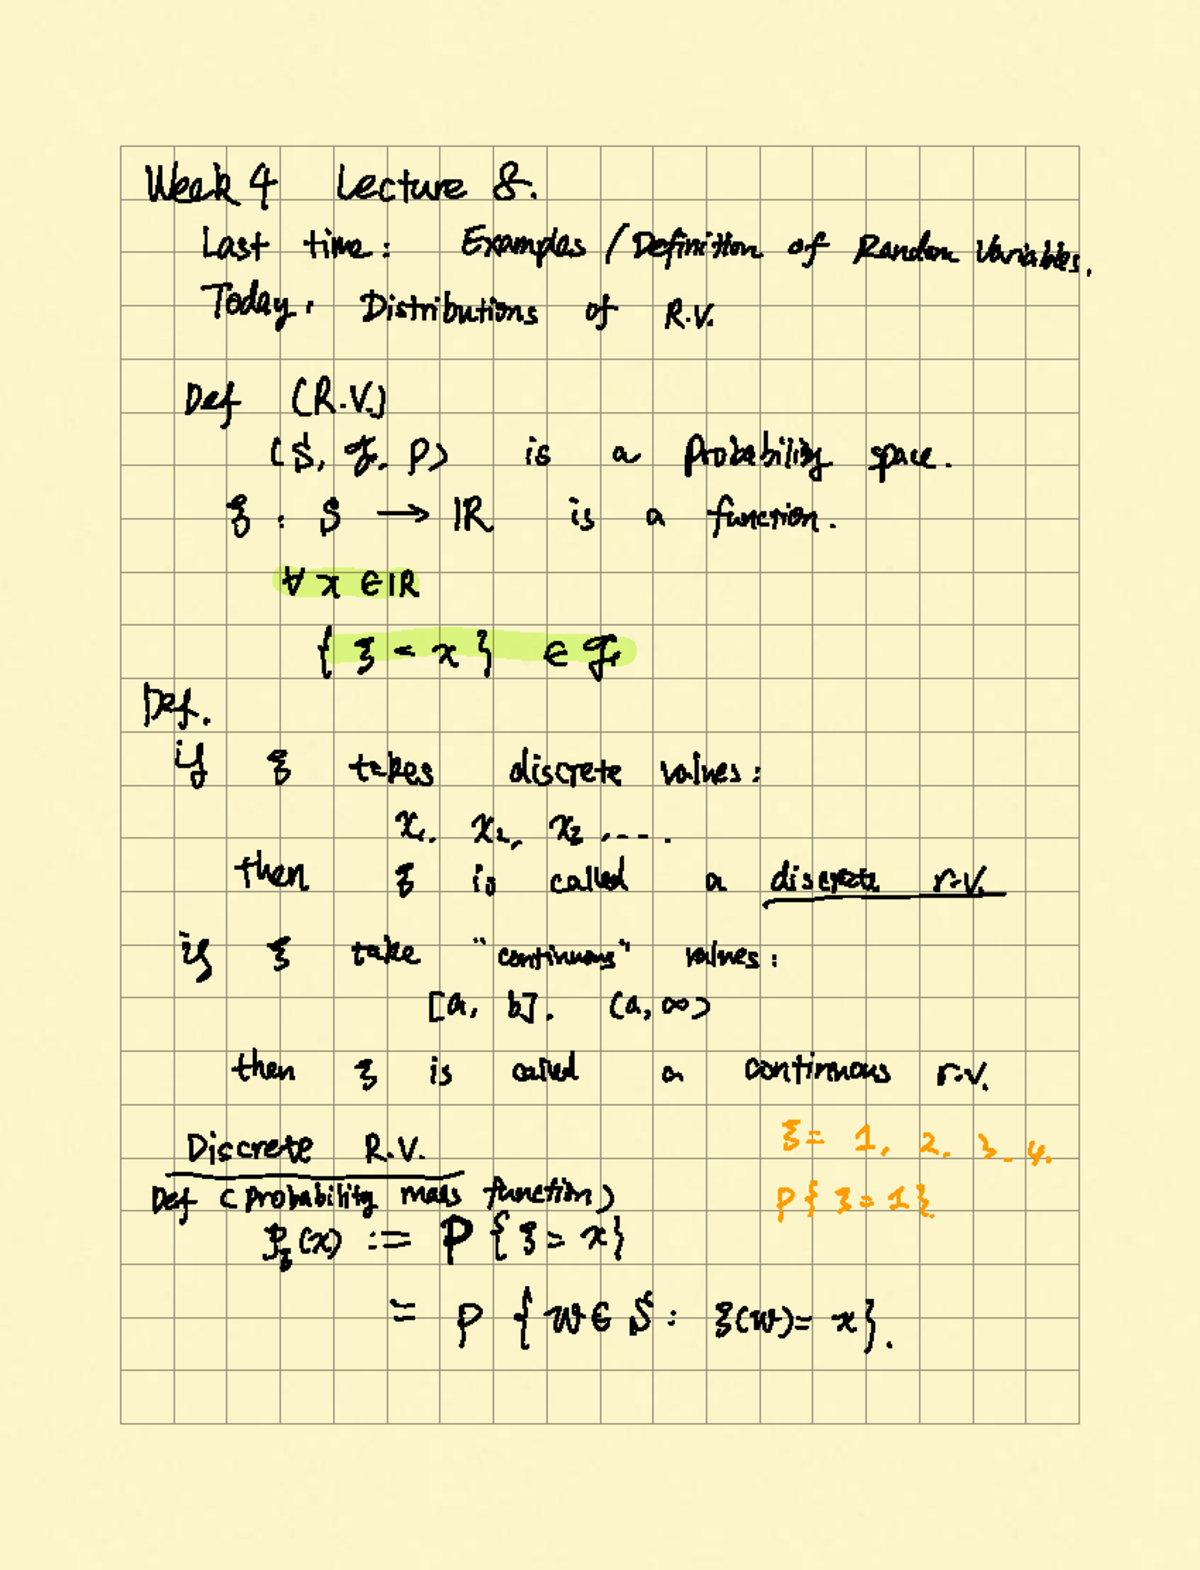 Week 4 Lecture 8.
Last time: Examples / Definition of Random Variables.
Today. Distributions of R.V.
Def (R.V.)
(S, ℱ, P) is a Probability space.
ξ : S → ℝ is a function.
∀ x ∈ ℝ
{ ξ < x } ∈ ℱ
Def.
if ξ takes discrete values:
x₁, x₂, x₂ ,----.
then ξ is called a discrete r.v.
if ξ take "continuous" values:
[a, b]. (a, ∞)
then ξ is called a continuous r.v.
Discrete R.V.
ξ = 1, 2, 3, 4.
Def (Probability mass function)
P{ ξ = 1}
P_ξ(x) := P {ξ = x}
= P {w ∈ S : ξ(w) = x}.